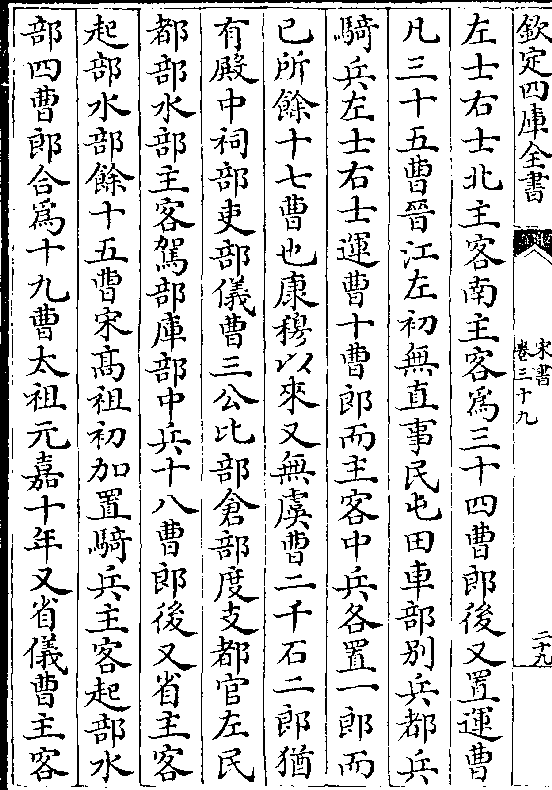 欽定四庫全書
宋書
卷三十九
二十九
左士右士北主客南主客爲三十四曹郎後又置運曹
凡三十五曹晉江左初無直事民屯田車部别兵都兵
騎兵左士右士運曹十曹郎而主客中兵各置一郎而
已所餘十七曹也康穆以來又無虞曹二千石二郎猶
有殿中祠部吏部儀曹三公比部倉部度支都官左民
都部水部主客駕部庫部中兵十八曹郎後又省主客
起部水部餘十五曹宋髙祖初加置騎兵主客起部水
部四曹郎合爲十九曹太祖元嘉十年又省儀曹主客